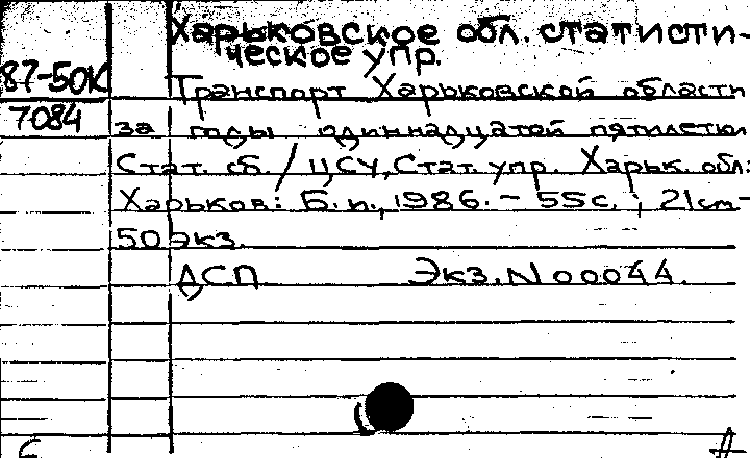 Харьковское обл. статисти-
ческое упр.
87-50К
7084
Транспорт Харьковской области
за годы одиннадцатой пятилетки
Стат. сб. / ЦСУ, Стат. упр. Харьк. обл.
Харьков: Б. и., 1986. - 55 с. ; 21 cm -
50 экз.
ДСП Экз. N 00044.